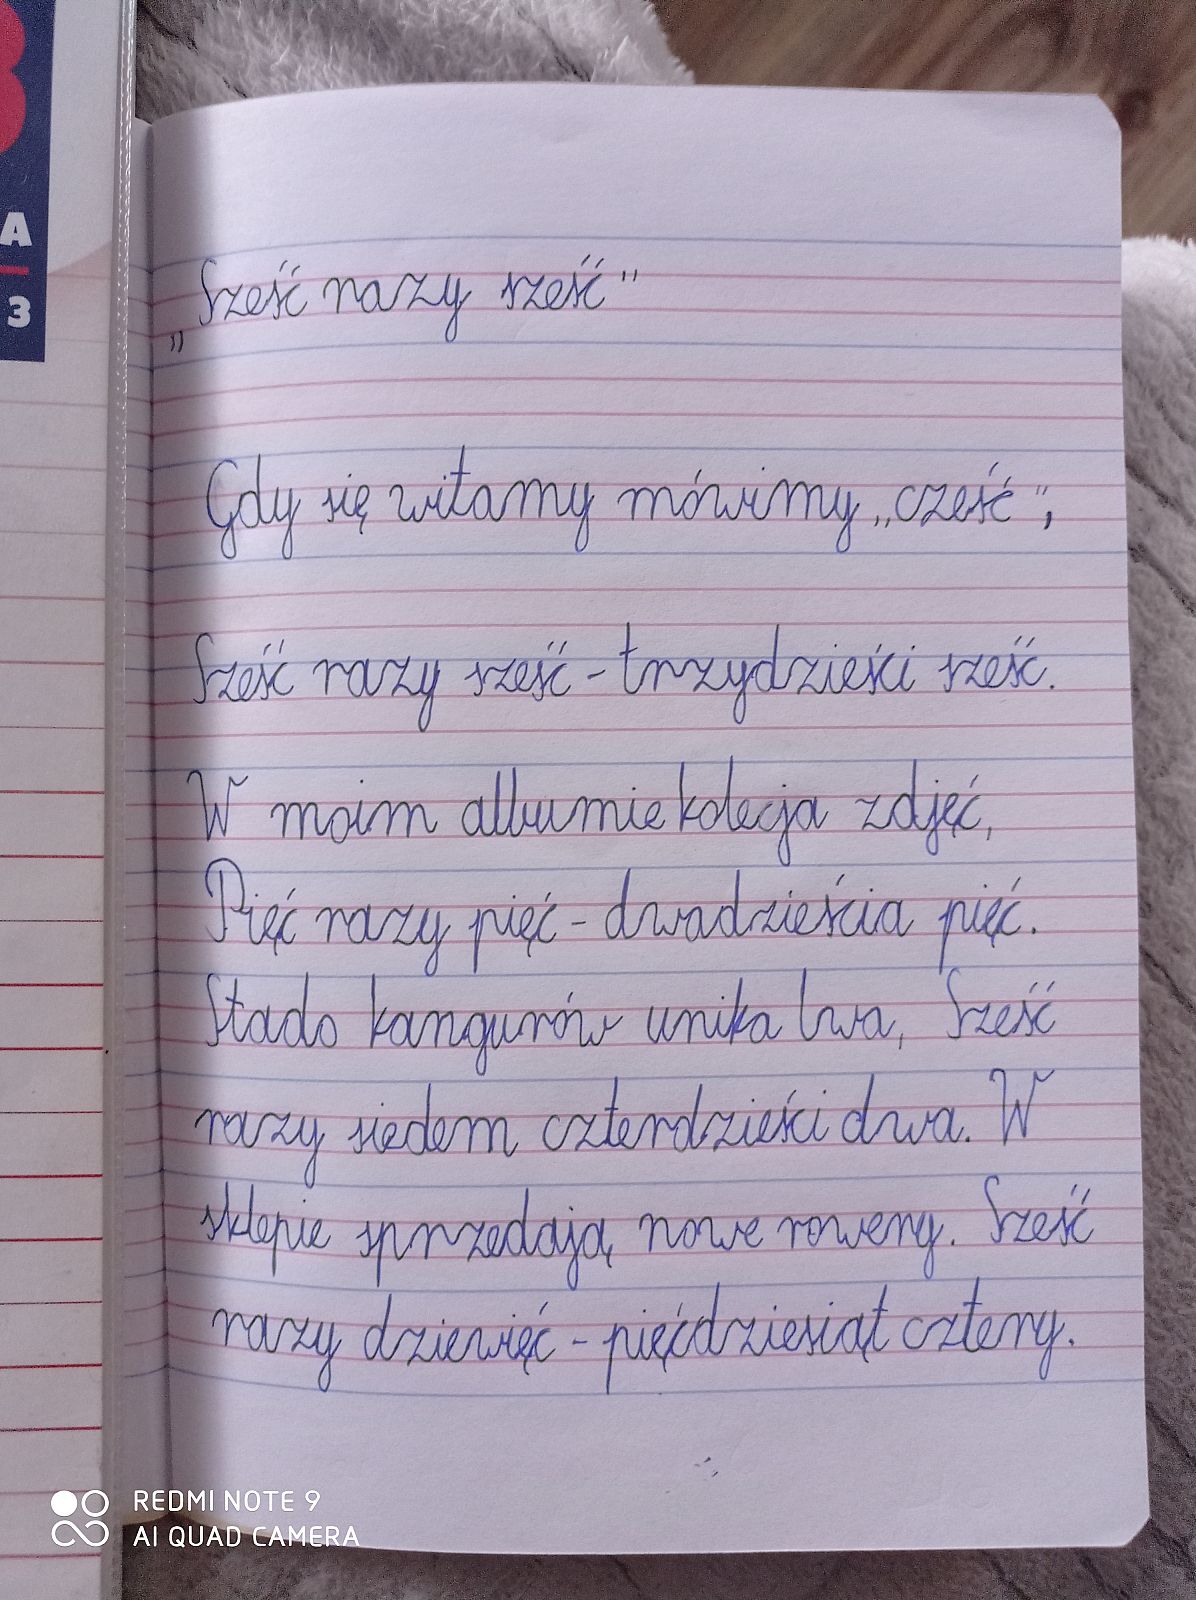 3
A
3
„Sześć razy sześć"
Gdy się witamy mówimy „cześć",
Sześć razy sześć - trzydzieści sześć.
W moim albumie kolecja zdjęć,
Pięć razy pięć - dwadzieścia pięć.
Stado kangurów unika lwa, Sześć
razy siedem czterdzieści dwa. W
sklepie sprzedają nowe rowery. Sześć
razy dziewięć - pięćdziesiąt cztery.
REDMI NOTE 9
AI QUAD CAMERA